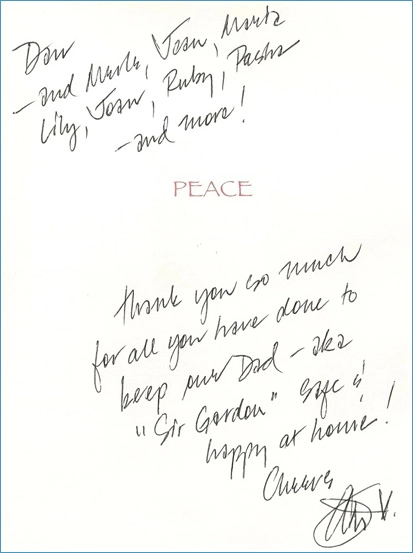 Dan
– and Merle, Jean, Marta
Lily, Joan, Ruby, Pasha
– and more!
PEACE
Thank you so much
for all you have done to
keep our Dad – aka
"Sir Gordon" safe &
happy at home!
Cheers